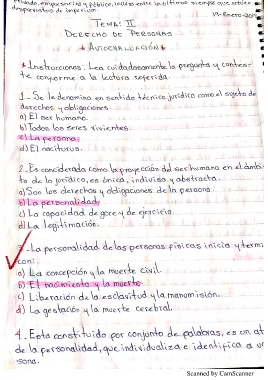 privado, empresarios y público, incluso entre los últimos siempre que actúen
desprovistos de imperium.
19-Enero-20
TEMA: II
DERECHO DE PERSONAS
* AUTOEVALUACIÓN *
* Instrucciones: Lea cuidadosamente la pregunta y contes-
te conforme a la lectura referida.
1.- Se le denomina en sentido técnico jurídico como el sujeto de
derechos y obligaciones.
a) El ser humano.
b) Todos los seres vivientes.
c) La persona.
d) El nasciturus.
2.- Es considerada como la proyección del ser humano en el ámbi-
to de lo jurídico, es única, indivisa y abstracta.
a) Son los derechos y obligaciones de la persona.
b) La personalidad.
c) La capacidad de goce y de ejercicio.
d) La legitimación.
3.- La personalidad de las personas físicas inicia y termi
con:
a) La concepción y la muerte civil.
b) El nacimiento y la muerte.
c) Liberación de la esclavitud y la manumisión.
d) La gestación y la muerte cerebral.
4.- Esta constituido por conjunto de palabras, es un at
de la personalidad, que individualiza e identifica a
sona.
Scanned by CamScanner